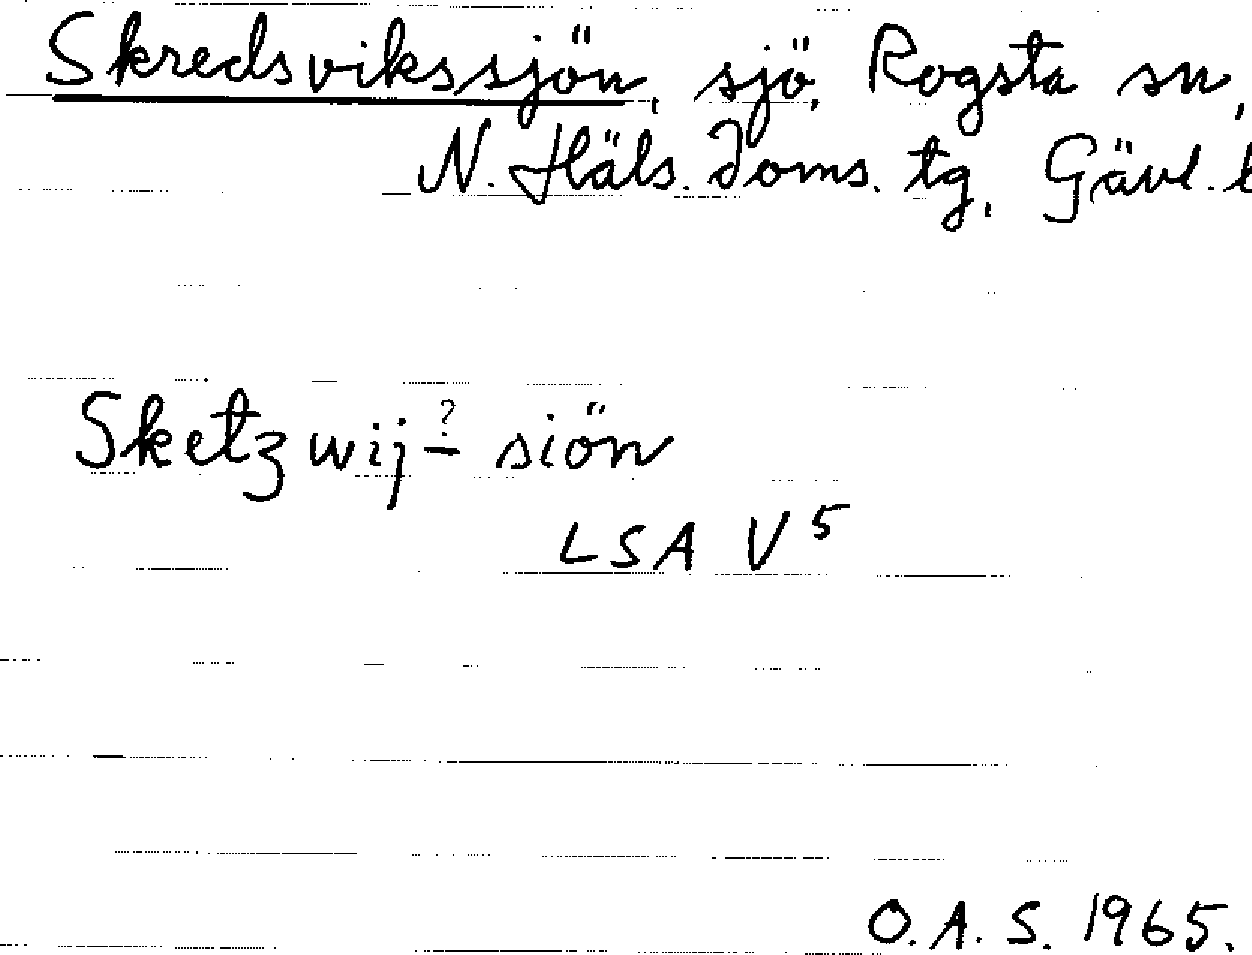 Skredsvikssjön, sjö, Rogsta sn,
N. Häls. Doms. tg, Gävl. l
Sketzwij-? siön
LSA V 5
O. A. S. 1965.